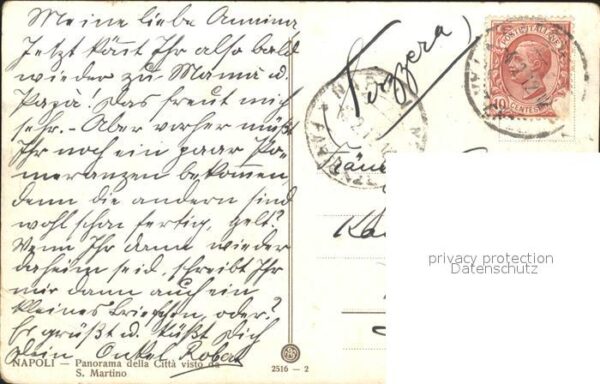 Meine liebe Annina,
Jetzt käut Ihr also bald
wieder zu Mama u.
Papa! Das freut mich
sehr. – Aber vorher müßt
Ihr noch ein paar Po-
meranzen bekommen
denn die andern sind
wohl schon fertig, gelt?
Wenn Ihr dann wieder
daheim seid, schreibt Ihr
mir dann auch ein
kleines Briefchen, oder?
Es grüßt u. küßt Dich
Dein Onkel Robert
NAPOLI — Panorama della Città visto da
S. Martino
2516 — 2
(Svizzera)
POSTE ITALIANE
10 CENTES
privacy protection
Datenschutz